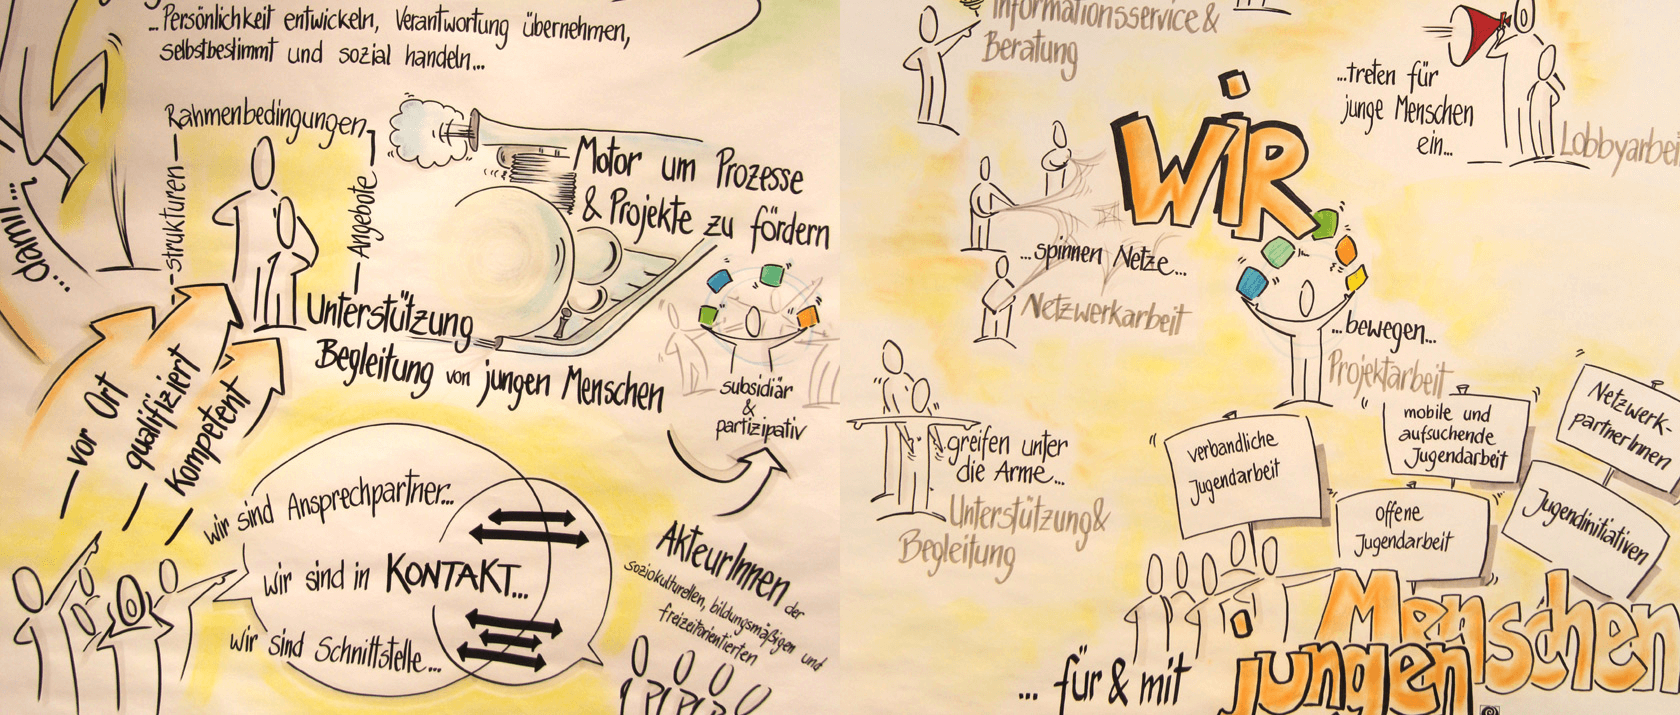 ...Persönlichkeit entwickeln, Verantwortung übernehmen,
selbstbestimmt und sozial handeln...
Rahmenbedingungen
Strukturen
Angebote
...damit...
Motor um Prozesse
& Projekte zu fördern
Unterstützung
Begleitung von jungen Menschen
subsidiär
&
partizipativ
vor Ort
qualifiziert
Kompetent
wir sind Ansprechpartner...
wir sind in KONTAKT...
wir sind Schnittstelle...
AkteurInnen der
soziokulturellen, bildungsmäßigen und
freizeitorientierten
Informationsservice &
Beratung
WiR
...treten für
junge Menschen
ein...
Lobbyarbei
...spinnen Netze...
Netzwerkarbeit
...bewegen...
Projektarbeit
greifen unter
die Arme...
Unterstützung &
Begleitung
verbandliche
Jugendarbeit
mobile und
aufsuchende
Jugendarbeit
Netzwerk-
partnerInnen
offene
Jugendarbeit
Jugendinitiativen
... für & mit jungen Menschen